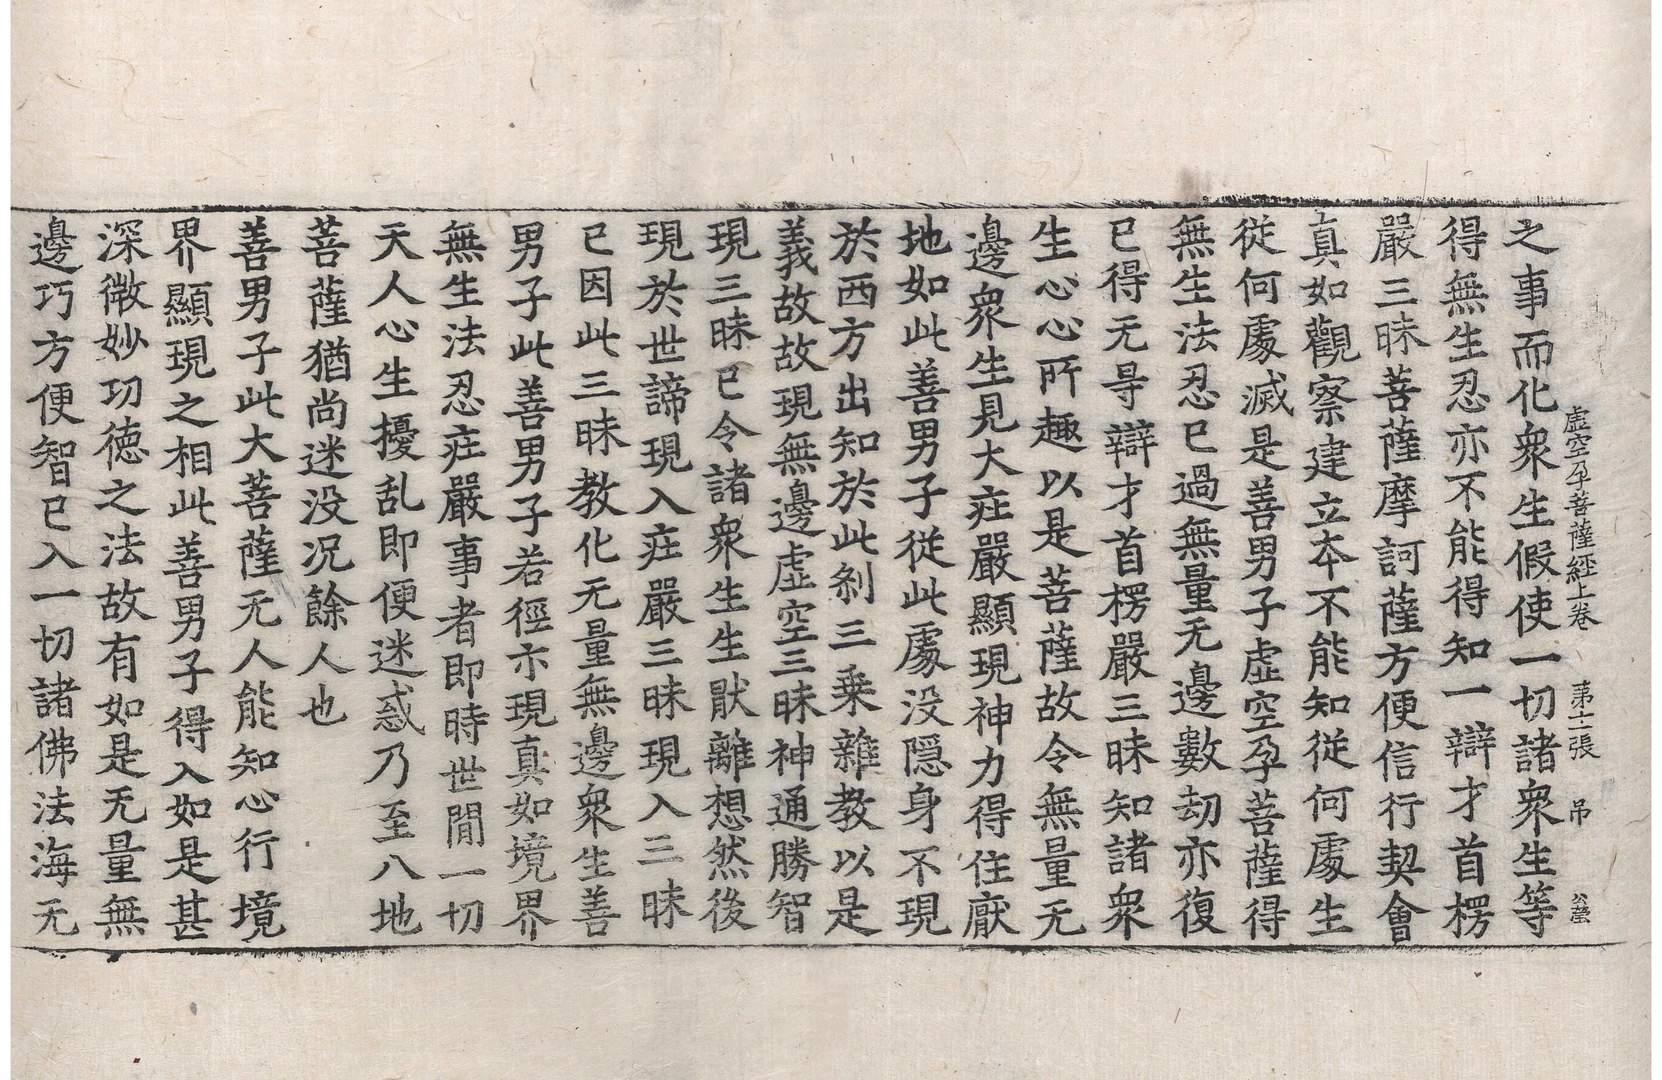 虚空孕菩薩經上卷 苐十二張 吊
之事而化衆生假使一切諸衆生等
得無生忍亦不能得知一辯才首楞
嚴三昧菩薩摩訶薩方便信行契會
真如觀察建立本不能知從何處生
從何處滅是善男子虛空孕菩薩得
無生法忍已過無量无邊數劫亦復
已得无㝵辯才首楞嚴三昧知諸衆
生心心所趣以是菩薩故令無量无
邊衆生見大莊嚴顯現神力得住猒
地如此善男子從此處没隱身不現
於西方出知於此刹三乗雜教以是
義故故現無邊虛空三昧神通勝智
現三昧已令諸衆生生猒離想然後
現於世諦現入莊嚴三昧現入三昧
已因此三昧教化无量無邊衆生善
男子此善男子若徑亦現真如境界
無生法忍莊嚴事者即時世閒一切
天人心生擾乱即便迷惑乃至八地
菩薩猶尚迷没况餘人也
善男子此大菩薩无人能知心行境
界顯現之相此善男子得入如是甚
深微妙功徳之法故有如是无量無
邊巧方便智已入一切諸佛法海无